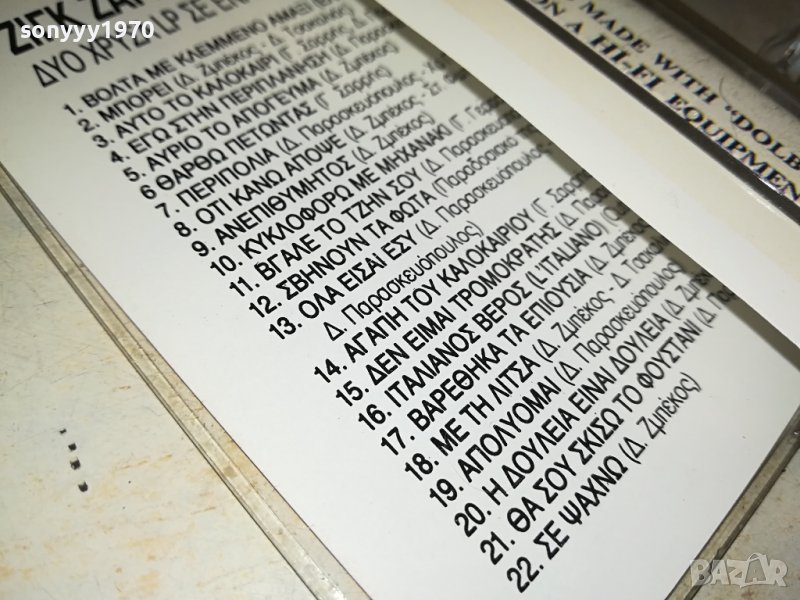 sonyyy1970
ΖΙΓΚ ΖΑΓΚ
ΔΥΟ ΧΡΥΣΑ LP ΣΕ ΕΝΑ
1. ΒΟΛΤΑ ΜΕ ΚΛΕΜΜΕΝΟ ΑΜΑΞΙ
2. ΜΠΟΡΕΙ (Δ. Ζμπέκος - Δ. Τσακαλ
3. ΑΥΤΟ ΤΟ ΚΑΛΟΚΑΙΡΙ (Γ. Σαρρής
4. ΕΓΩ ΣΤΗΝ ΠΕΡΙΠΛΑΝΗΣΗ
5. ΑΥΡΙΟ ΤΟ ΑΠΟΓΕΥΜΑ (Δ. Ζμπέκος)
6 ΘΑΡΘΩ ΠΕΤΩΝΤΑΣ (Γ. Σαρρής)
7. ΠΕΡΙΠΟΛΙΑ (Δ. Παρασκευόπουλος
8. ΟΤΙ ΚΑΝΩ ΑΠΟΨΕ (Δ. Ζμπέκος - Στ.
9. ΑΝΕΠΙΘΥΜΗΤΟΣ (Δ. Ζμπέκος)
10. ΚΥΚΛΟΦΟΡΩ ΜΕ ΜΗΧΑΝΑΚΙ (Γ.
11. ΒΓΑΛΕ ΤΟ ΤΖΗΝ ΣΟΥ (Δ. Παρασκευόπου
12. ΣΒΗΝΟΥΝ ΤΑ ΦΩΤΑ (Παραδοσιακό
13. ΟΛΑ ΕΙΣΑΙ ΕΣΥ (Δ. Παρασκευόπουλος -
Δ. Παρασκευόπουλος)
14. ΑΓΑΠΗ ΤΟΥ ΚΑΛΟΚΑΙΡΙΟΥ (Γ. Σαρρής
15. ΔΕΝ ΕΙΜΑΙ ΤΡΟΜΟΚΡΑΤΗΣ (Δ. Παρασ
16. ΙΤΑΛΙΑΝΟΣ ΒΕΡΟΣ (L'ITALIANO)
17. ΒΑΡΕΘΗΚΑ ΤΑ ΕΠΙΟΥΣΙΑ (Δ. Ζμπέκος
18. ΜΕ ΤΗ ΛΙΤΣΑ (Δ. Ζμπέκος - Δ. Τσακαλ
19. ΑΠΟΛΥΟΜΑΙ (Δ. Παρασκευόπουλος
20. Η ΔΟΥΛΕΙΑ ΕΙΝΑΙ ΔΟΥΛΕΙΑ (Δ. Ζμπέ
21. ΘΑ ΣΟΥ ΣΚΙΣΩ ΤΟ ΦΟΥΣΤΑΝΙ (Δ.
22. ΣΕ ΨΑΧΝΩ (Δ. Ζμπέκος)
MADE WITH "DOLB
ON A HI-FI EQUIPMEN
BAZAR